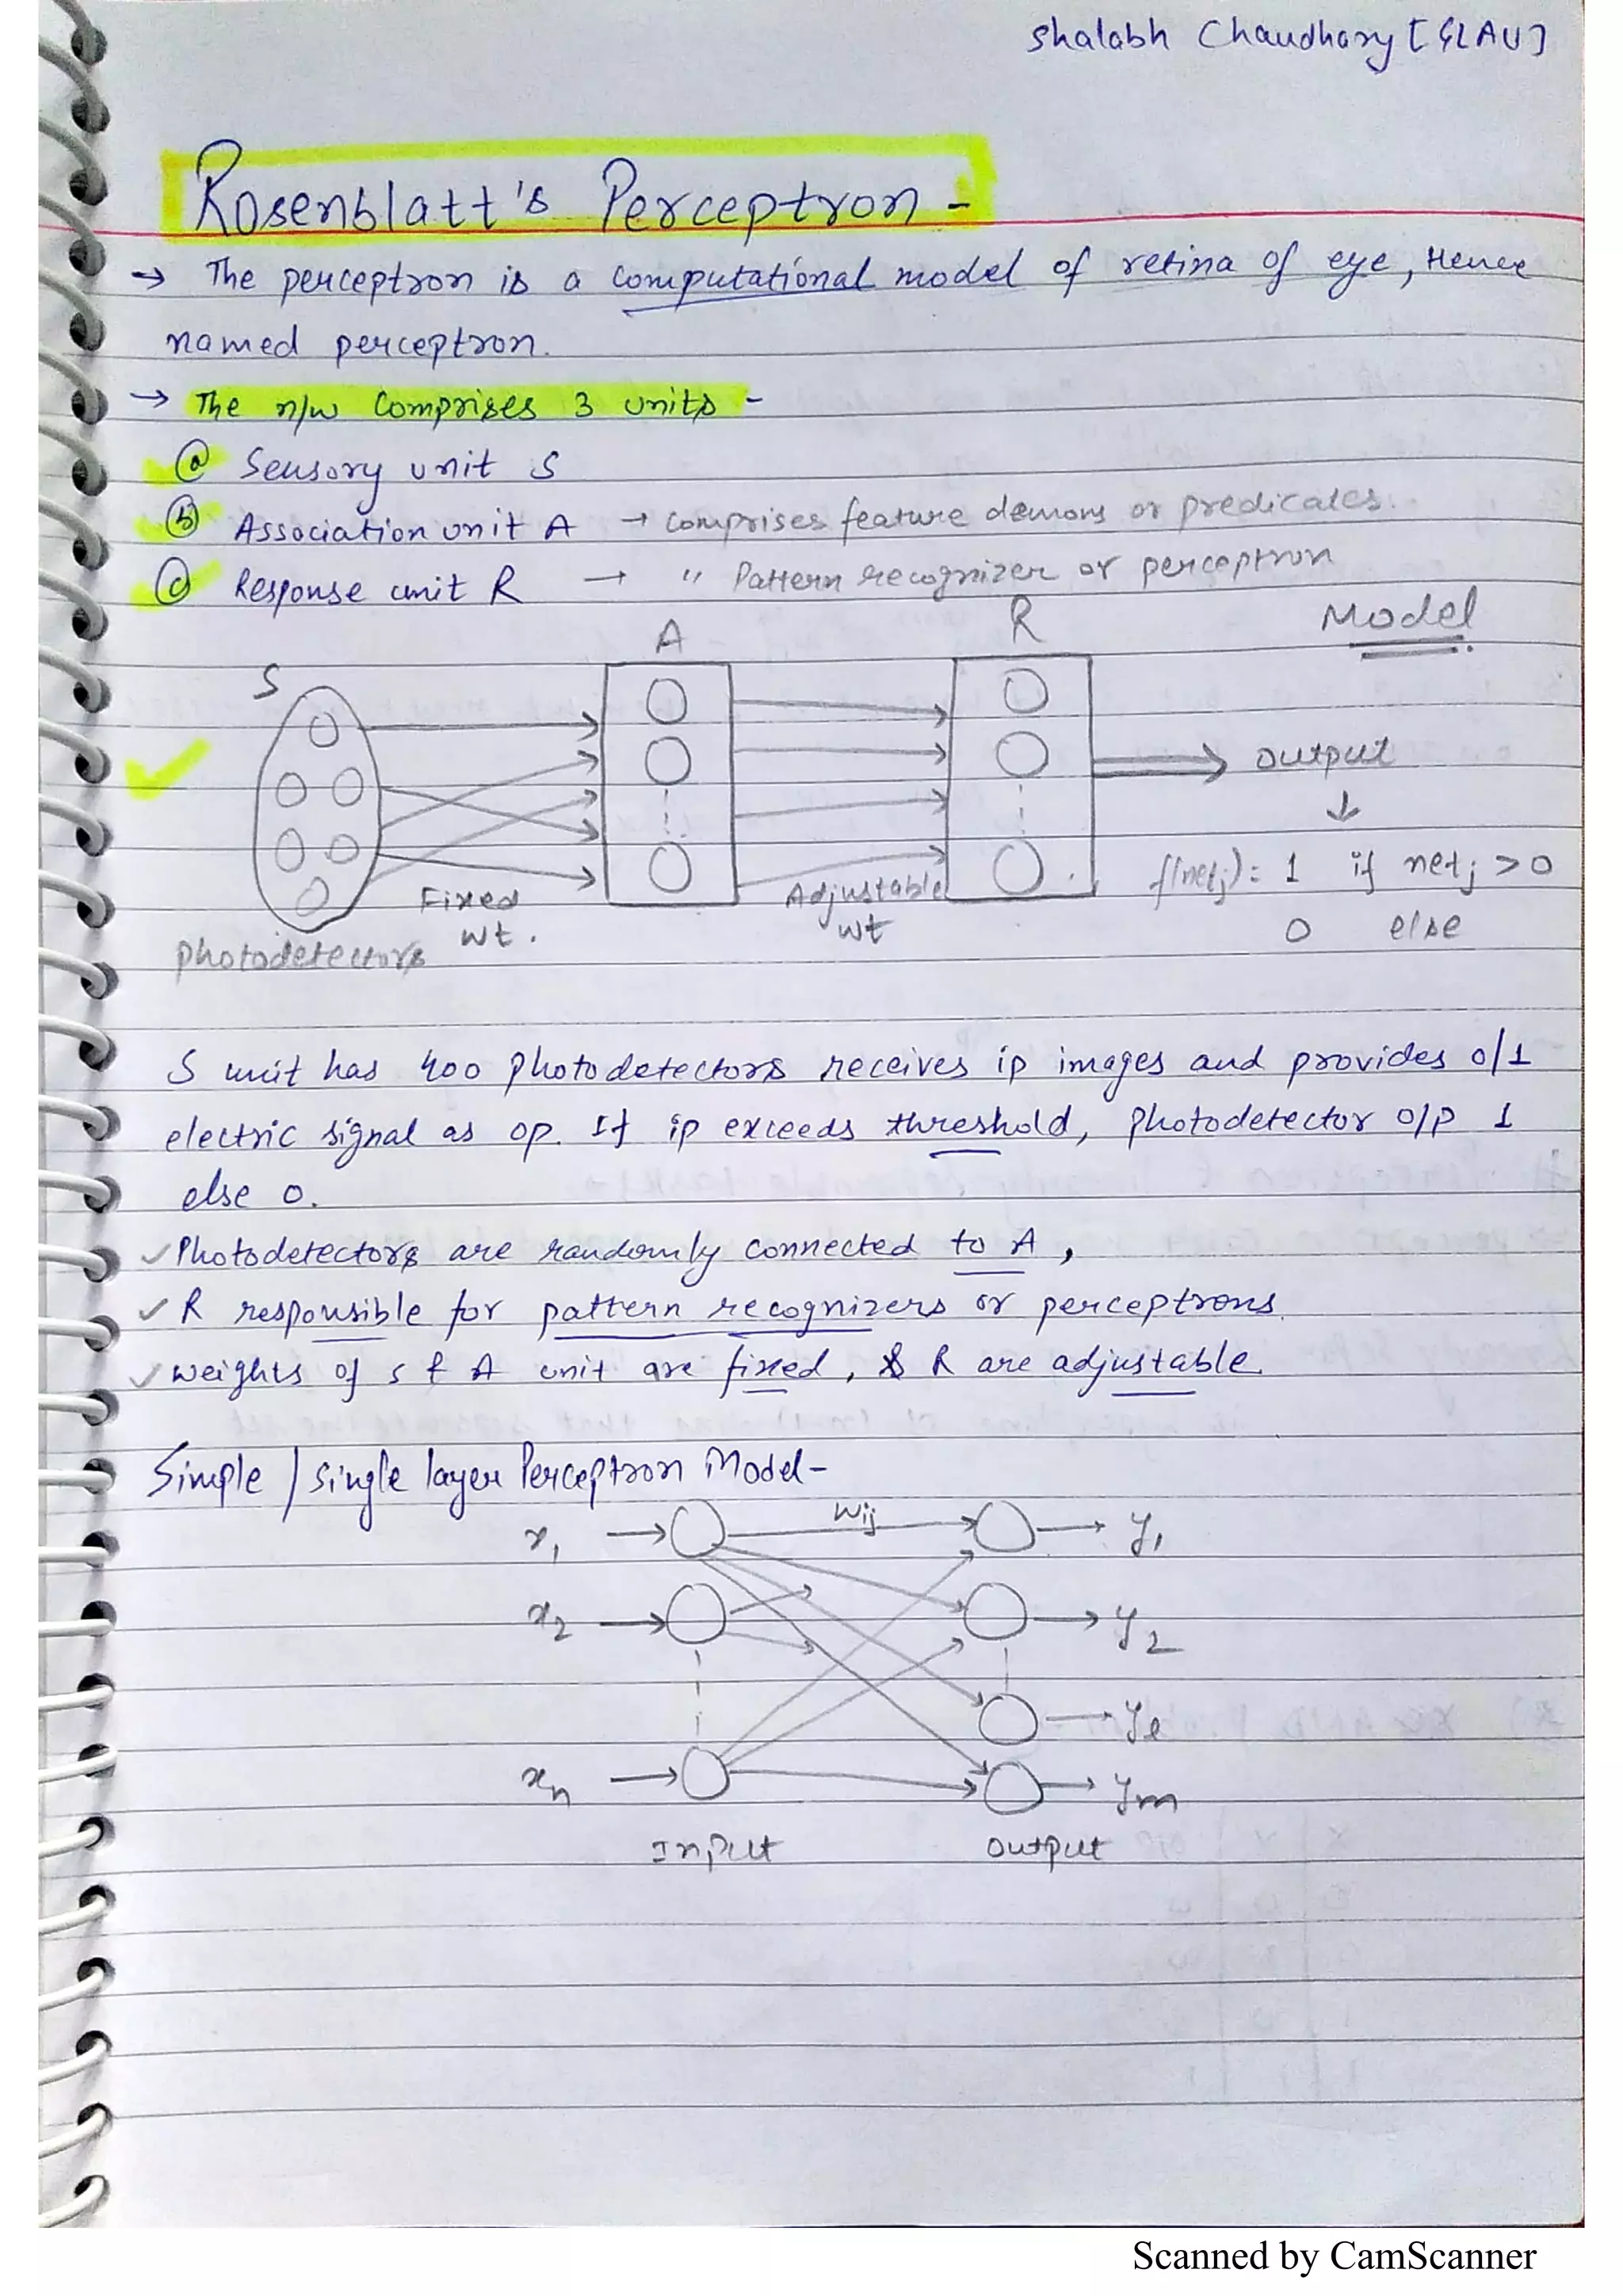 Shalabh Chaudhary [GLAU]
Rosenblatt's Perceptron -
→ The perceptron is a computational model of retina of eye, Hence
named perceptron.
→ The n/w comprises 3 units -
ⓐ Sensory unit S
ⓑ Association unit A → comprises feature demons or predicates.
ⓒ Response unit R → " Pattern recognizer or perceptron
Model
S A R
output
↓
f(netj) = 1 if netj > 0
0 else
Fixed
wt.
Adjustable
wt
photodetectors
S unit has 400 photodetectors receives ip images and provides 0/1
electric signal as op. If ip exceeds threshold, photodetector o/p 1
else 0.
✓ Photodetectors are randomly connected to A,
✓ R responsible for pattern recognizers or perceptrons.
✓ weights of S & A unit are fixed, & R are adjustable.
Simple / Single layer Perceptron Model-
x1 → wij → y1
x2 → → y2
→ ye
xn → → ym
Input Output
Scanned by CamScanner